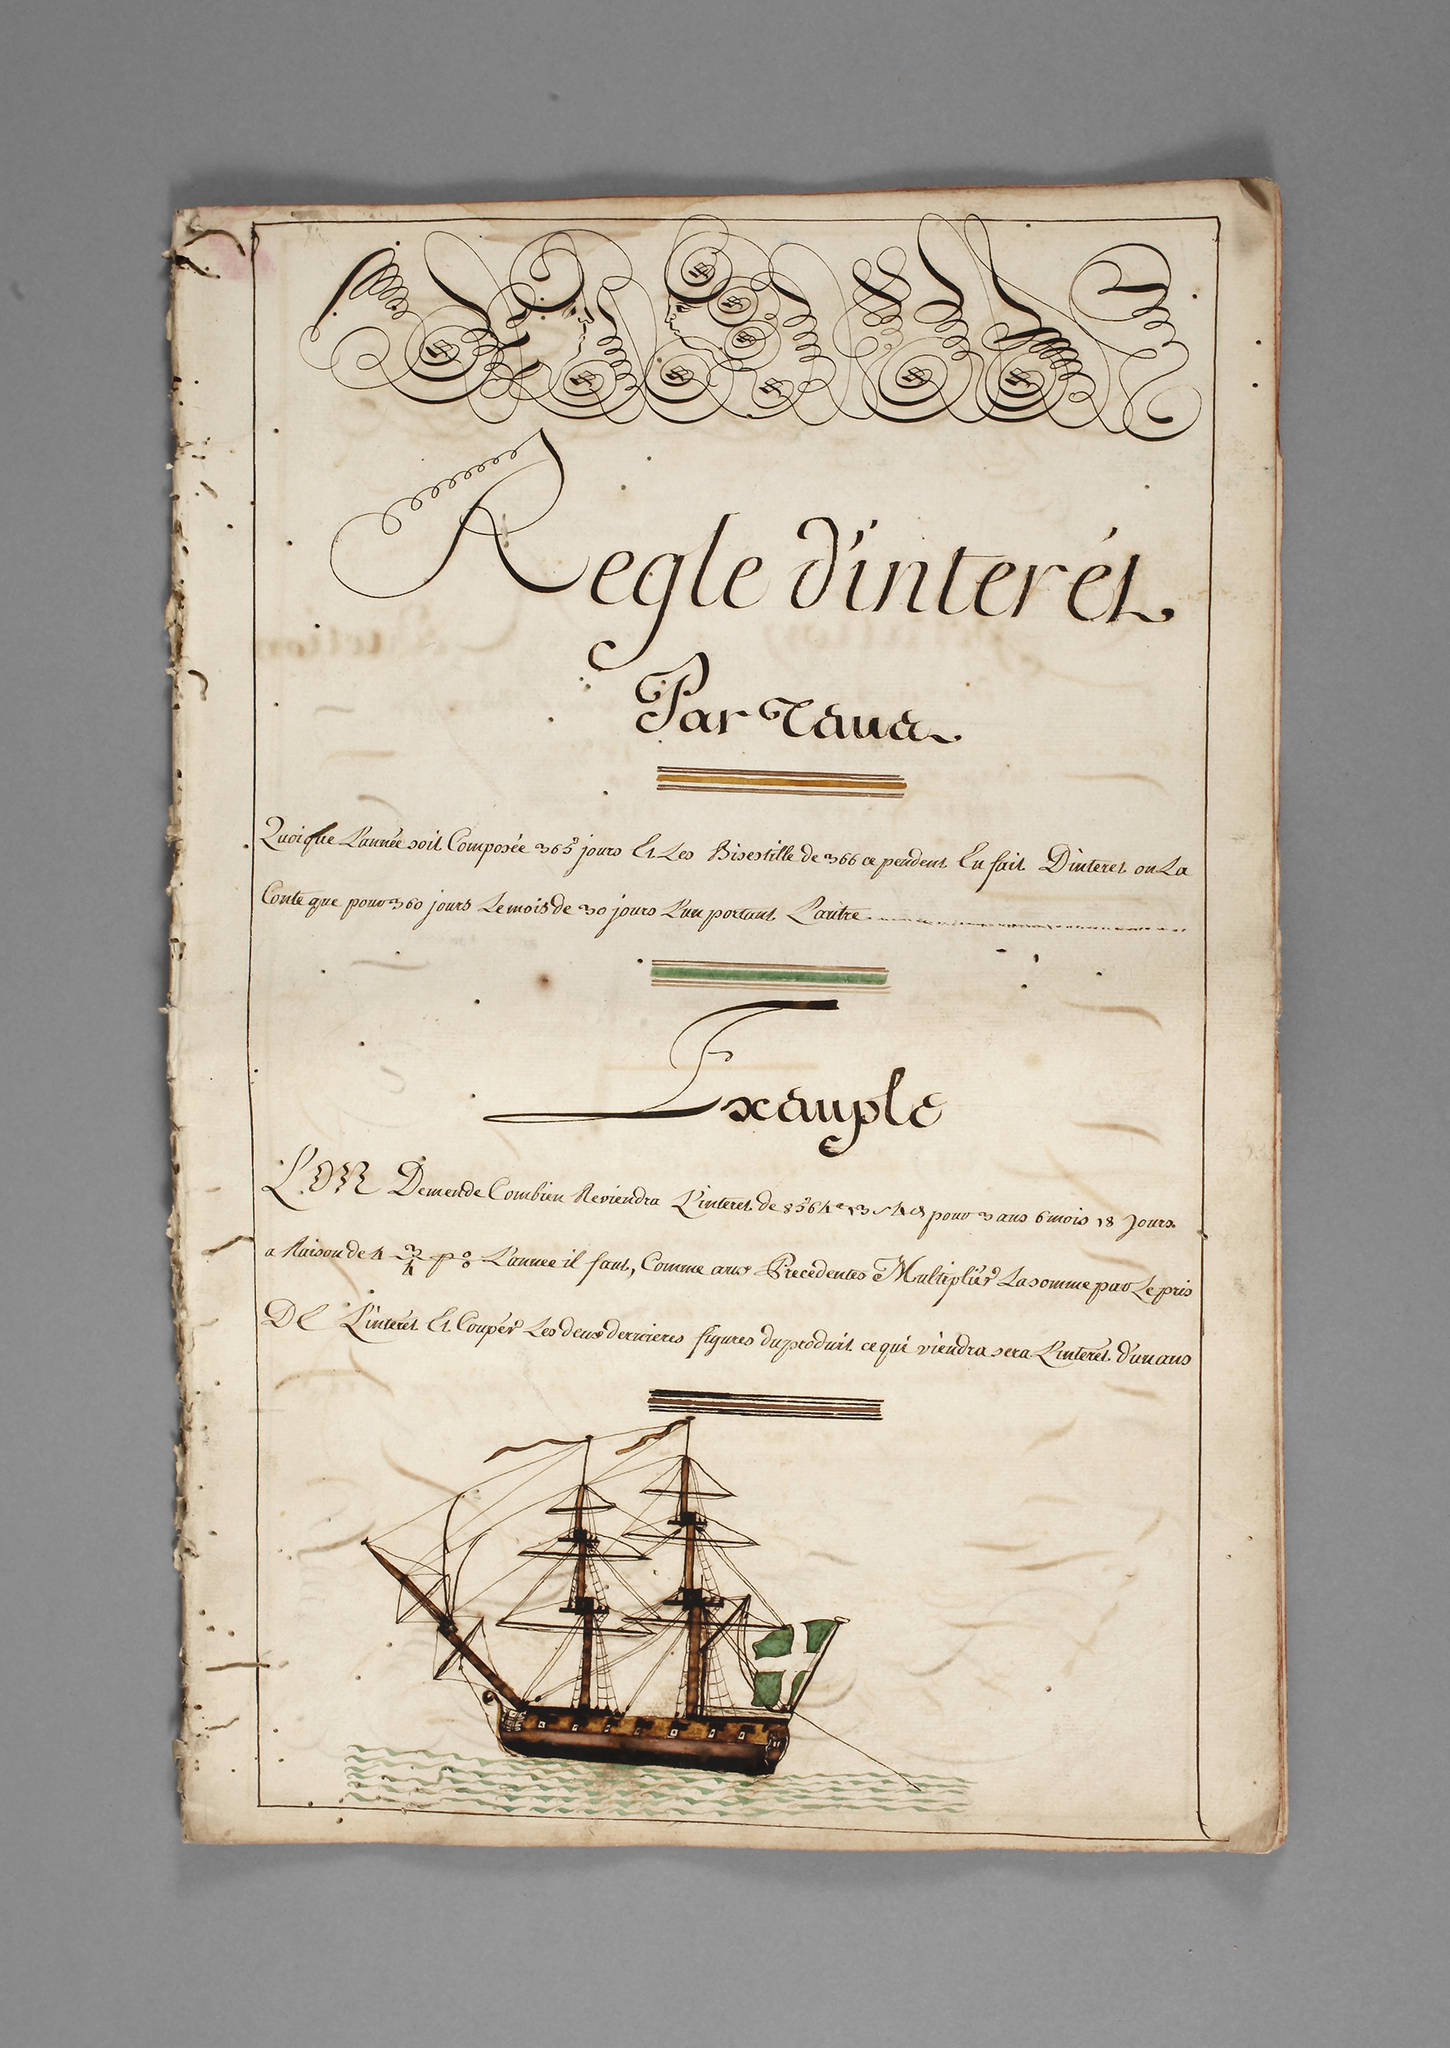 Regle d'interét
Par Tems
Quoique L'année soit Composée 365 jours Et Les Bisestille de 366 ce pendent En fait D'interet on La
Conte que pour 360 jours Le mois de 30 jours L'un portant L'autre
Exemple
L'ON Demende Combien Reviendra L'interet de 8564 13 s 4 d pour 3 ans 6 mois 18 Jours
a Raison de 4 3/4 p % L'annee il faut, Comme aux Precedentes Multipliér La somme par Le pris
DE L'interét Et Coupér Les deux dernieres figures du produit ce qui viendra sera L'interét d'un ans